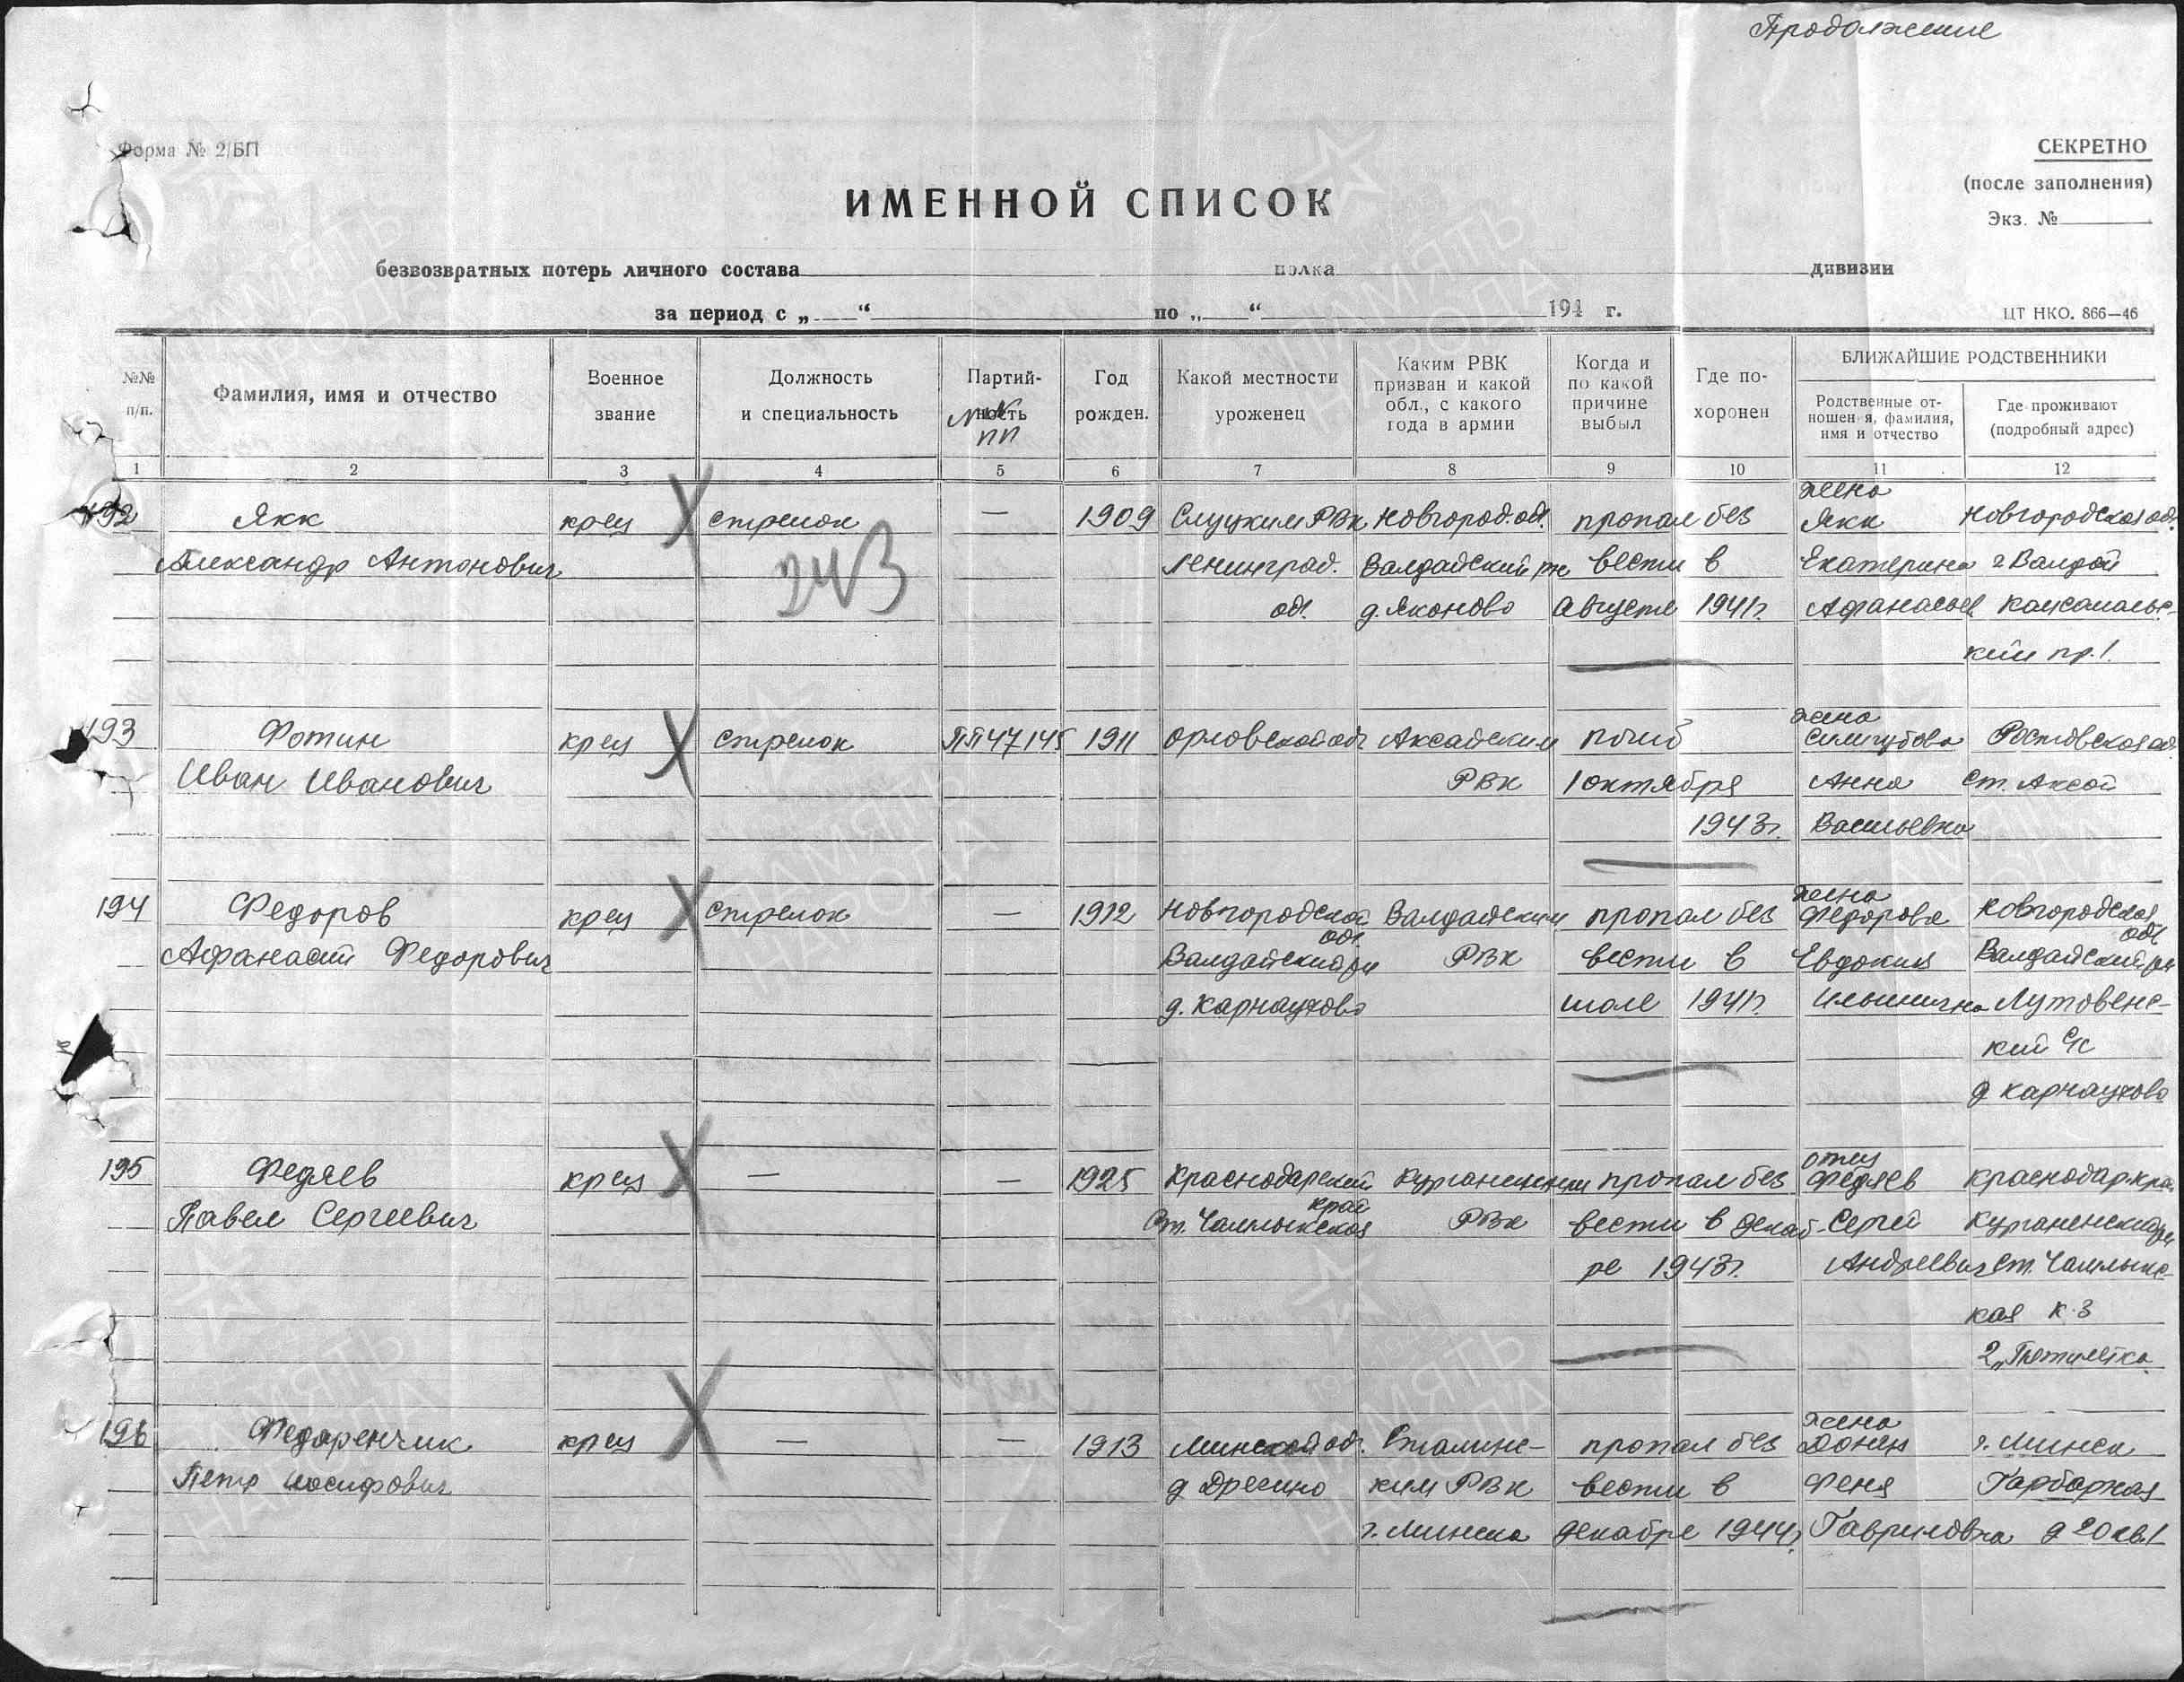 Продолжение
Форма № 2/БП
СЕКРЕТНО
(после заполнения)
Экз. №
ИМЕННОЙ СПИСОК
безвозвратных потерь личного состава полка дивизии
за период с „ “ по „ “ 194 г.
ЦТ НКО. 866—46
№№ п/п.
Фамилия, имя и отчество
Военное звание
Должность и специальность
Партийность
№№ ПП
Год рожден.
Какой местности уроженец
Каким РВК призван и какой обл., с какого года в армии
Когда и по какой причине выбыл
Где похоронен
БЛИЖАЙШИЕ РОДСТВЕННИКИ
Родственные отношения, фамилия, имя и отчество
Где проживают (подробный адрес)
1 2 3 4 5 6 7 8 9 10 11 12
жена
192 Якк крец стрелок — 1909 Слуцким РВК Новгород. обл. пропал без Якк Новгородская обл.
Александр Антонович Ленинград. Валдайский рн вести в Екатерина г Валдай
243
обл. д. Яконово Августе 1941г. Афанасьев Комсомольс-
кий пр. 1.
жена
193 Фотин крец стрелок ПП 47145 1911 Орловской обл Аксайским погиб Ростовская об
Иван Иванович РВК 1 октября Анна ст. Аксай
1943г. Васильевна
жена
194 Федоров крец стрелок — 1912 Новгородской Валдайским пропал без Федорова Новгородская
обл. обл
Афанасий Федорович Валдайский рн РВК вести в Евдокия Валдайский рн
д. Карнаухово июле 1941г. Ильинична Лутовенс-
кий с/с
д Карнаухово
отец
195 Федяев крец — — 1925 Краснодарский Курганинским пропал без Федяев Краснодар. кра
край
Павел Сергеевич Ст. Чамлыкская РВК вести в декаб- Сергей Курганенский рн
ре 1943г. Андреевич ст. Чамлыкс-
кая к-з
2 „Пятилетка
жена
196 Федоренчик крец — — 1913 Минской об. Сталинс- пропал без г. Минск
Петр Иосифович д ким РВК вести в Феня Гарбарная
г. Минска декабре 1944г. Гавриловна д 20 кв. 1
ПАМЯТЬ НАРОДА